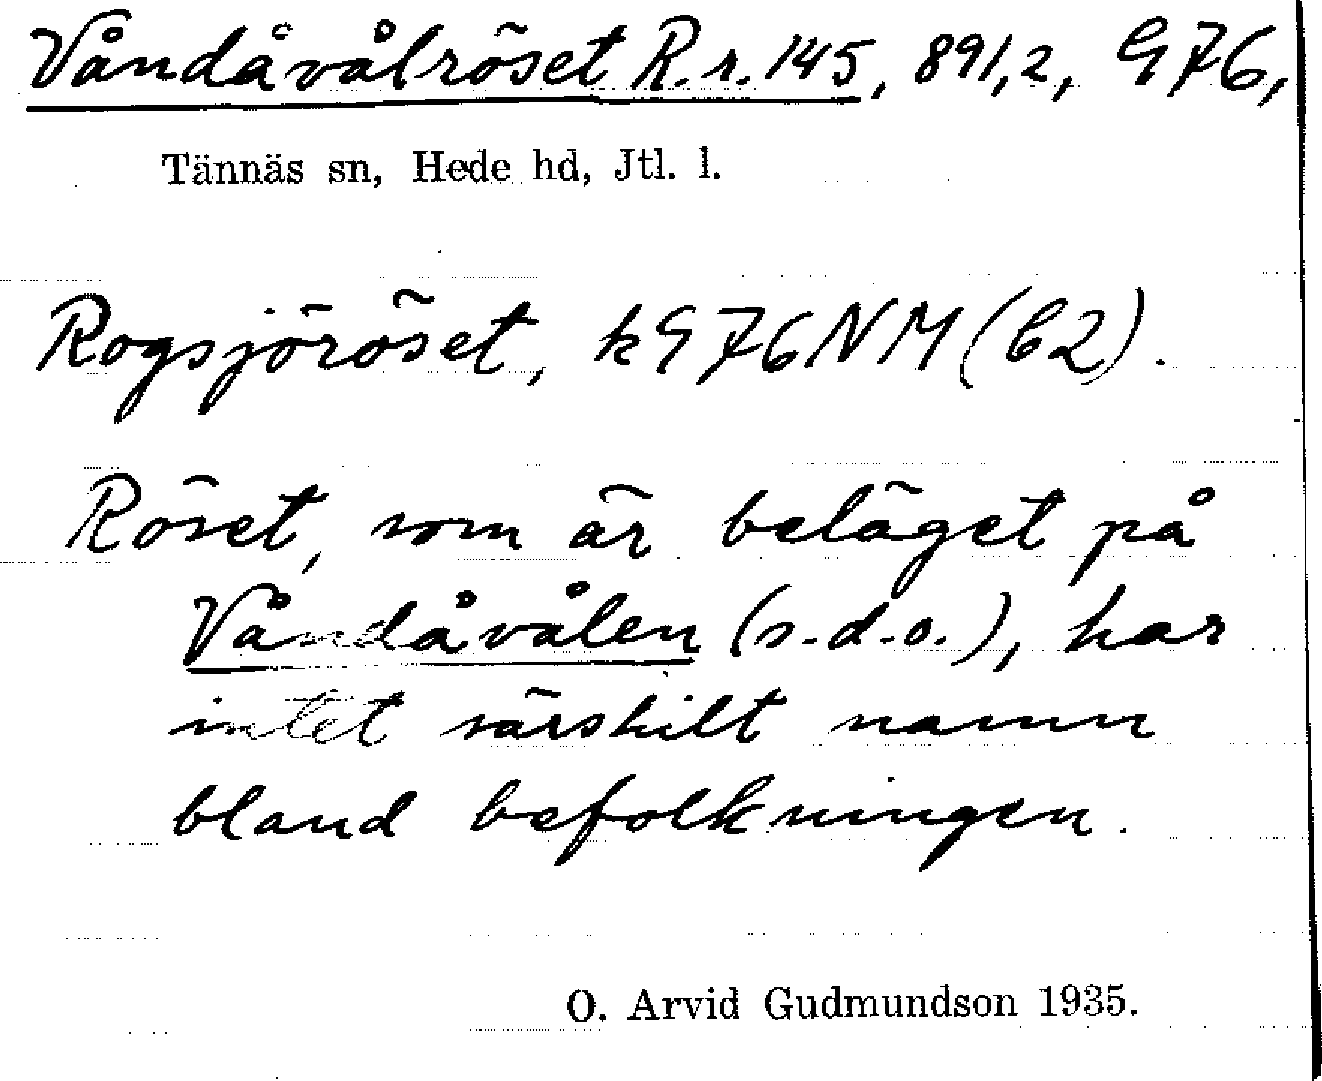 Våndåvålröset R.r.145, 891,2, G76,
Tännäs sn, Hede hd, Jtl. l.
Rogsjöröset, kG76NM(C2).
Röset, som är beläget på
Våndåvålen (s.d.o.), har
intet särskilt namn
bland befolkningen.
O. Arvid Gudmundson 1935.